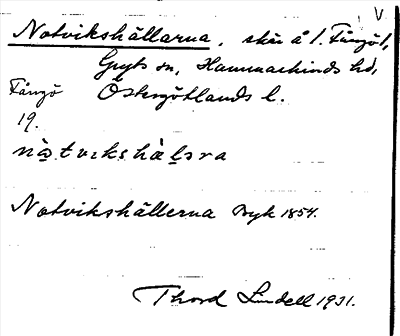 V
Notvikshällarna, skär å l. Fångö,
Gryts sn, Hammarkinds hd,
Fångö Östergötlands l.
19.
nòtvikshàlṣra
Notvikshällerna Byk 1854.
Thord Lindell 1931.